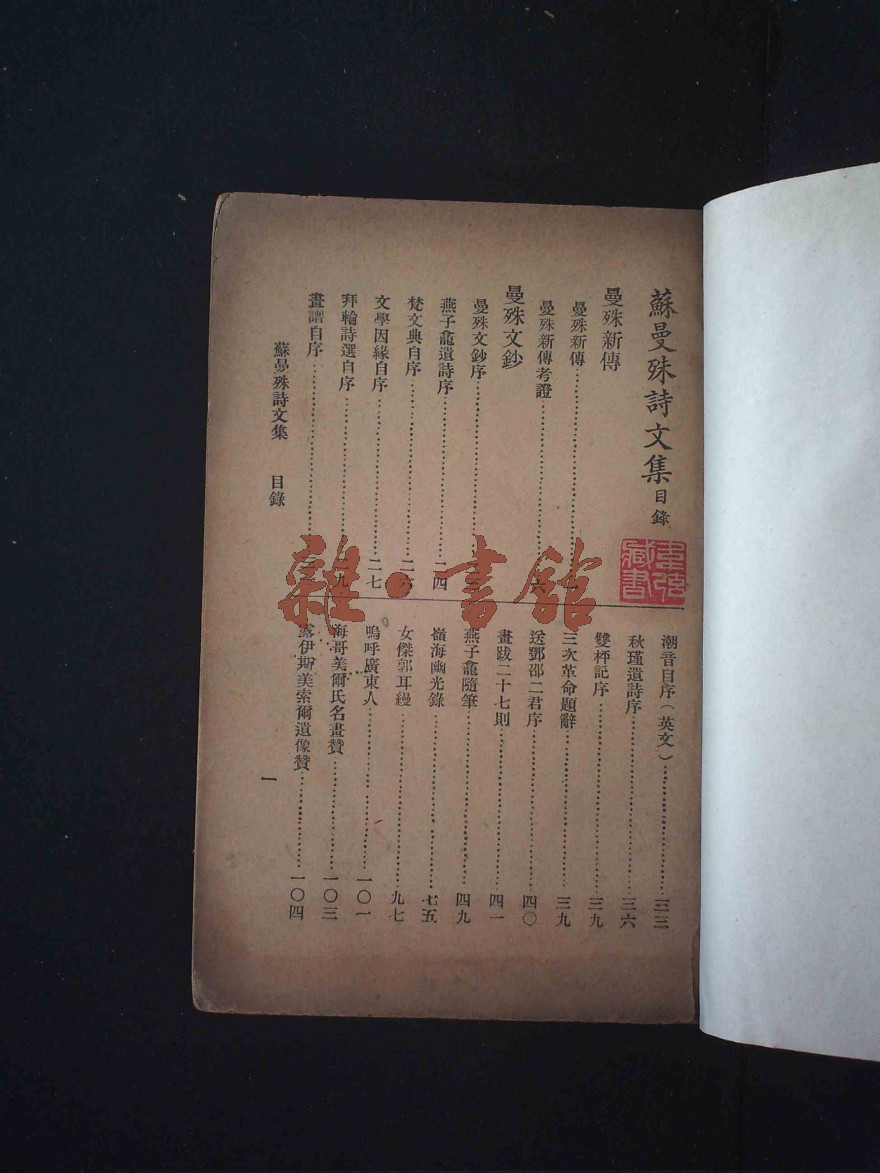 蘇曼殊詩文集目錄
曼殊新傳
曼殊新傳
曼殊新傳考證……六
曼殊文鈔
曼殊文鈔序
燕子龕遺詩序……二四
梵文典自序……二六
文學因緣自序……二七
拜輪詩選自序……二九
畫譜自序
潮音自序(英文)……三三
秋瑾遺詩序……三六
雙枰記序……三九
三次革命題辭……三九
送鄧邵二君序……四〇
畫跋二十七則……四一
燕子龕隨筆……四九
嶺海幽光錄……七五
女傑郭耳縵……九七
嗚呼廣東人……一〇一
海哥美爾氏名畫贊……一〇三
露伊斯美索爾遺像贊……一〇四
蘇曼殊詩文集 目錄
一
雜·書館
藏書